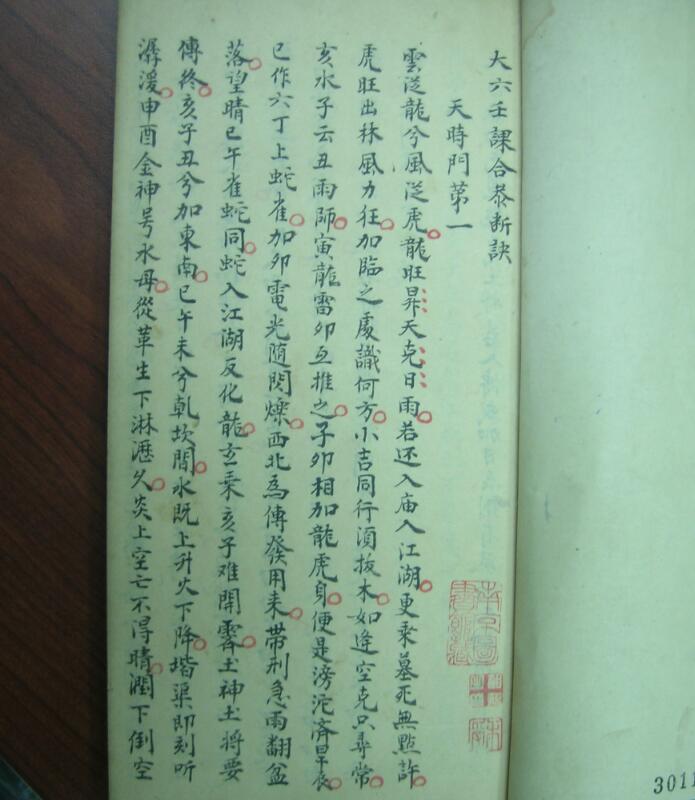 大六壬課合叅断訣
天時門第一
雲従龍兮風従虎龍旺昇天克日雨若还入庙入江湖更乘墓死無點許
虎旺出林風力狂加臨之處識何方小吉同行須拔木如逢空克只尋常
亥水子云丑雨師寅龍雷卯互推之子卯相加龍虎身便是滂沱済旱辰
巳作六丁上蛇雀加卯電光随閃爍西北為傳發用来帶刑急雨翻盆
落望晴巳午雀蛇同蛇入江湖反化龍玄乘亥子难開霽土神土将要
傳终亥子丑兮加東南巳午未兮乾坎間水既上升火下降堦渠即刻听
潺湲申酉金神号水母從革生下淋漓久炎上空亡不得晴潤下倒空
3011